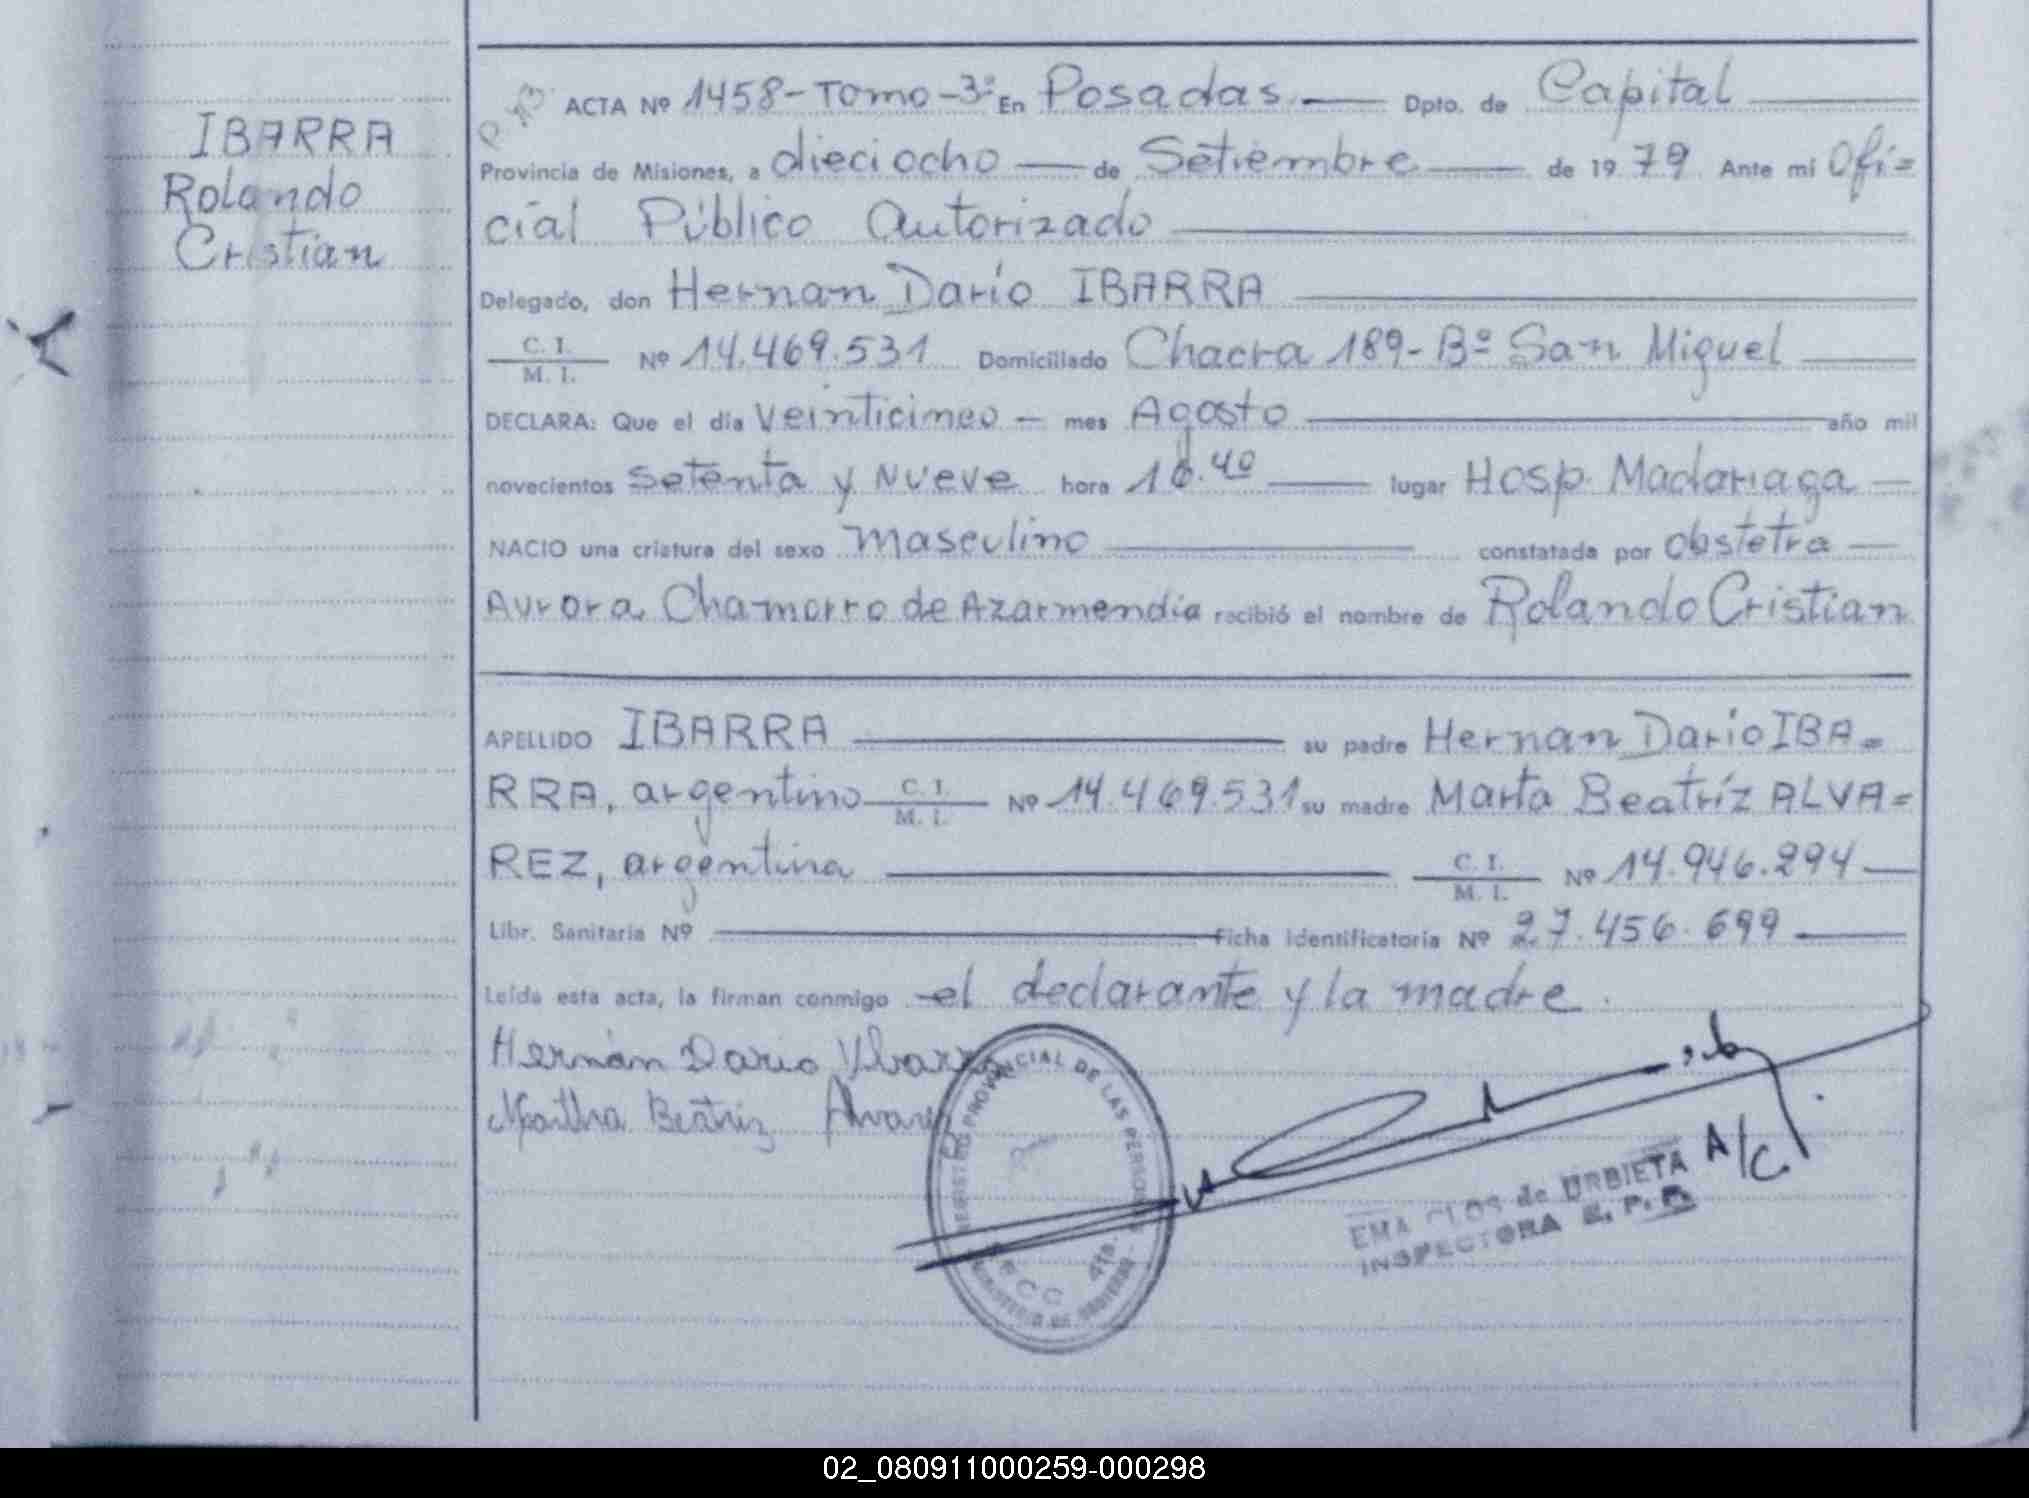 IBARRA
Rolando
Cristian
ACTA Nº 1458-Tomo-3º En Posadas Dpto. de Capital
Provincia de Misiones, a dieciocho de Setiembre de 1979 Ante mi Ofi=
cial Público Autorizado
Delegado, don Hernan Darío IBARRA
C. I.
M. I. Nº 14.469.531 Domiciliado Chacra 189-Bº San Miguel
DECLARA: Que el día Veinticinco mes Agosto año mil
novecientos setenta y Nueve hora 16.40 lugar Hosp. Madariaga
NACIO una criatura del sexo masculino constatada por obstetra
Aurora Chamorro de Azarmendia recibió el nombre de Rolando Cristian
APELLIDO IBARRA su padre Hernan Darío IBA=
RRA, argentino C. I.
M. I. Nº 14.469.531 su madre Marta Beatríz ALVA=
REZ, argentina C. I.
M. I. Nº 14.946.294
Libr. Sanitaria Nº Ficha identificatoria Nº 27.456.699
Leída esta acta, la firman conmigo el declarante y la madre.
Hernán Dario Ybarra
Martha Beatriz Alvarez
REGISTRO PROVINCIAL DE LAS PERSONAS
MINISTERIO DE GOBIERNO
SECC 4ta.
A/C.
EMA CLOS de URBIETA
INSPECTORA R. P. P.
02_080911000259-000298